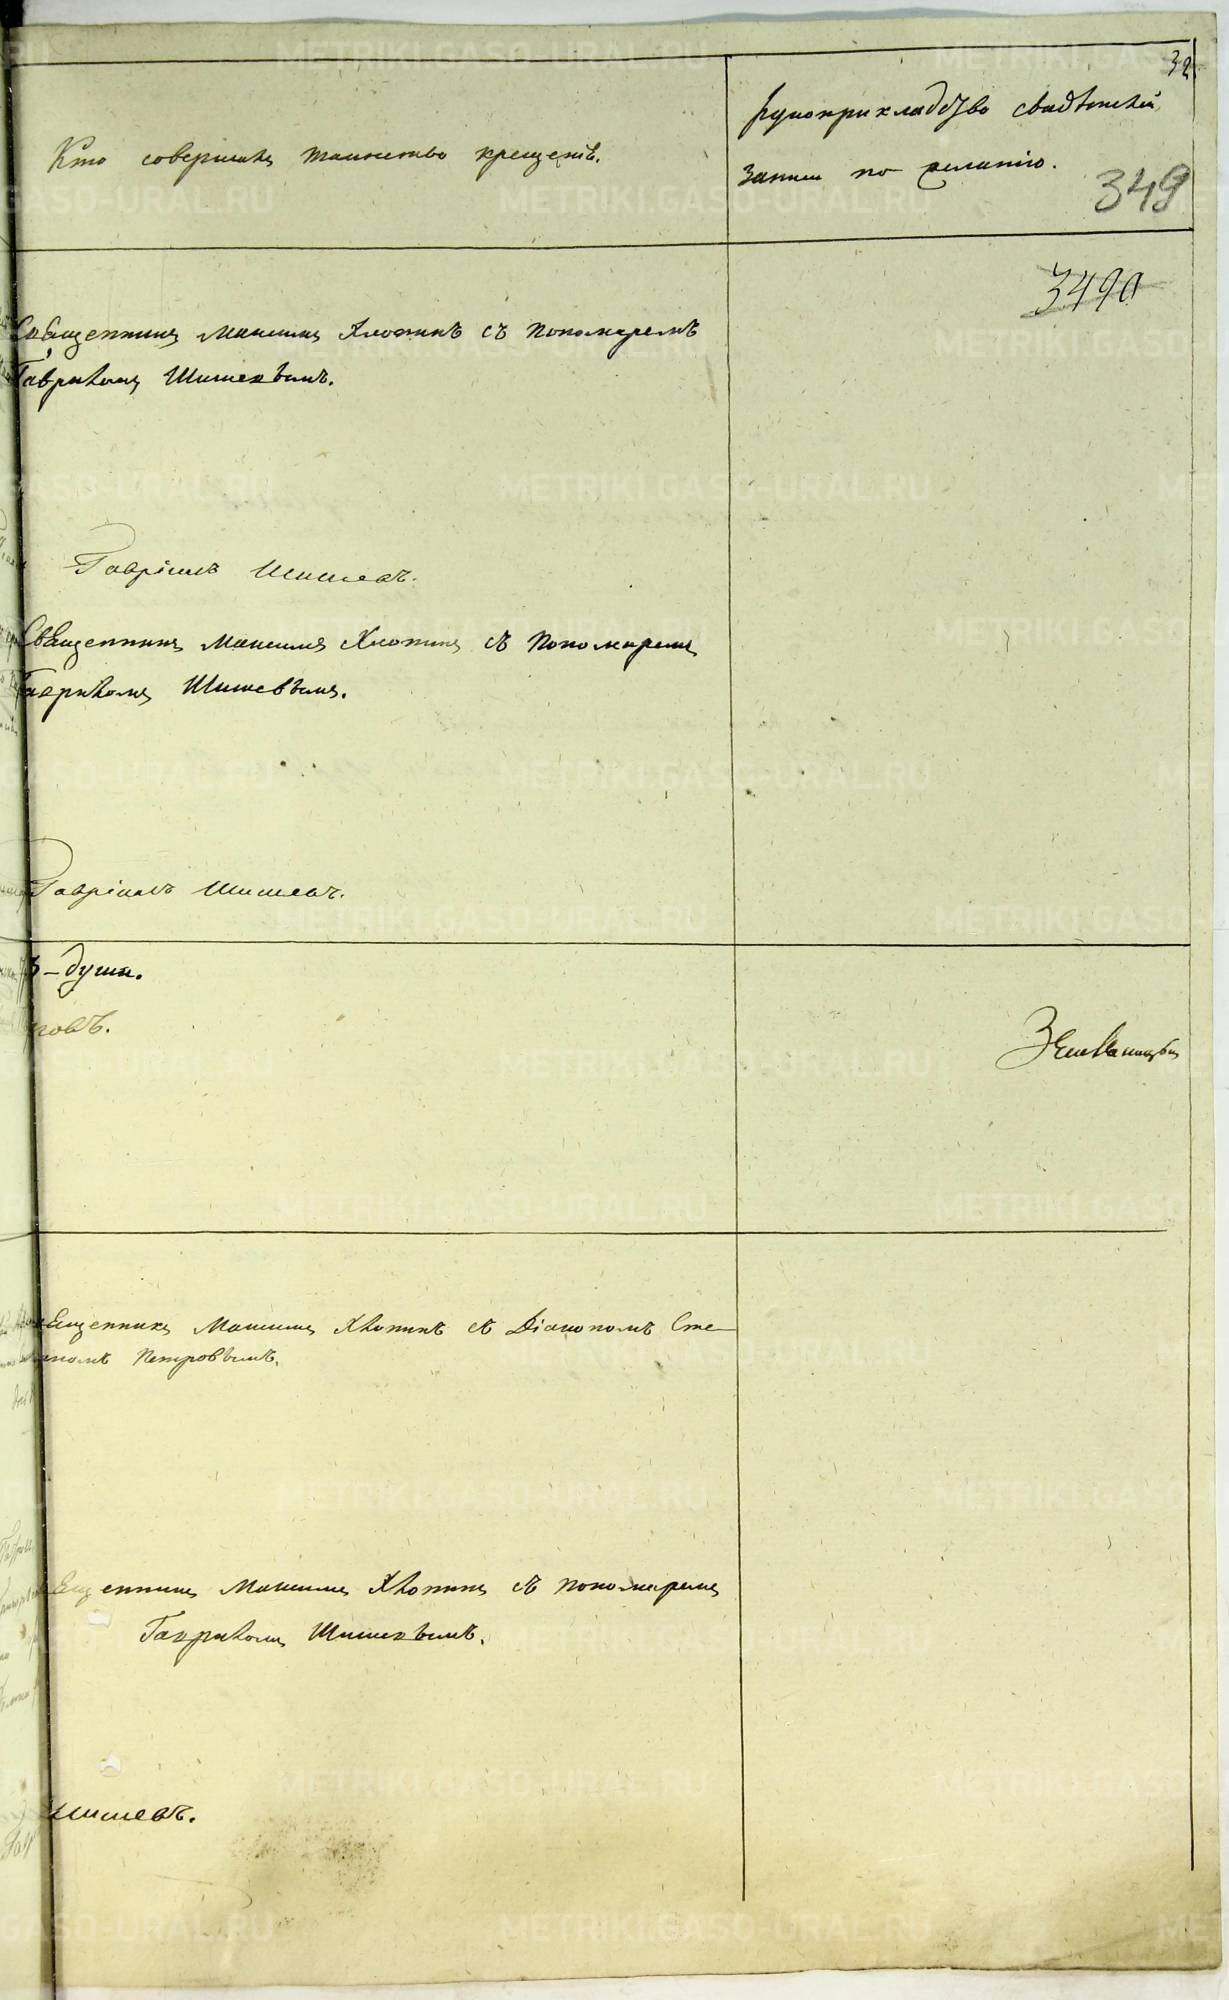 32
Кто совершалъ таинство крещенія.
Рукоприкладство свидѣтелей
записи по желанію.
349
3490
Священникъ Максимъ Хлопинъ съ Пономаремъ
Гавриломъ Шишевымъ.
Гавріилъ Шишевъ.
Священникъ Максимъ Хлопинъ съ Пономаремъ
Гавриломъ Шишевымъ.
Гавріилъ Шишевъ.
3 – души.
повъ.
щенникъ Максимъ Хлопинъ съ Діакономъ Сте–
паномъ Петровымъ.
щенникъ Максимъ Хлопинъ съ пономаремъ
Гавриломъ Шишевымъ.
Шишевъ.
METRIKI.GASO-URAL.RU